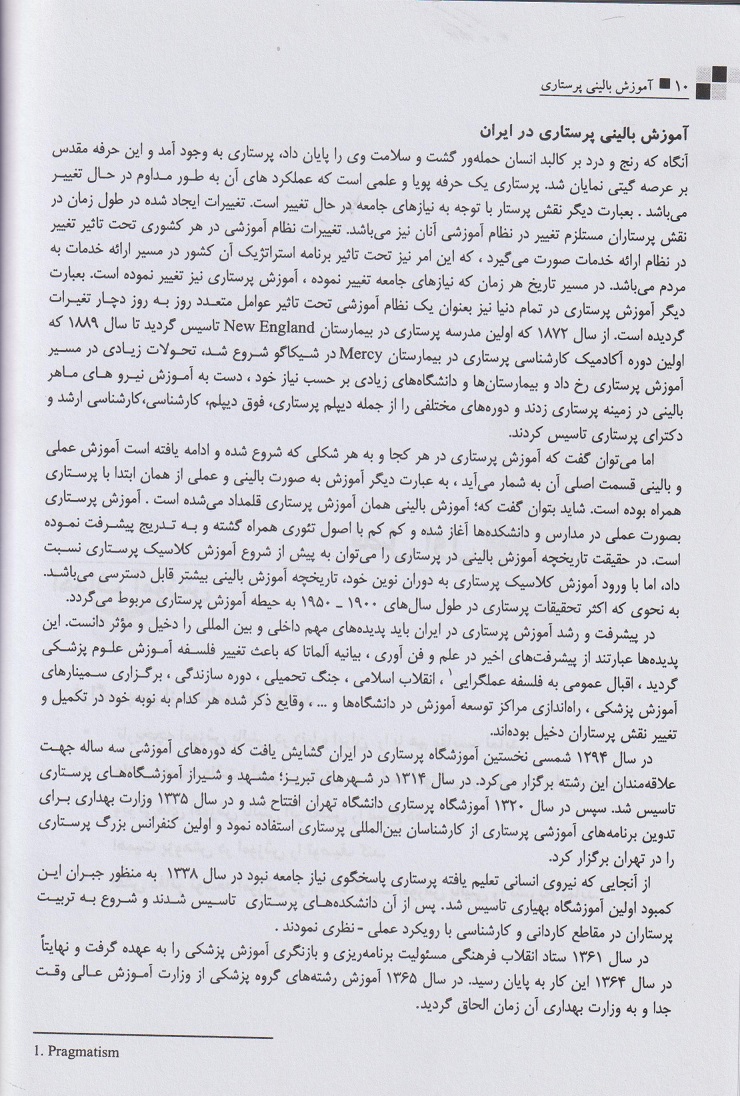 ۱۰ ■ آموزش بالینی پرستاری
آموزش بالینی پرستاری در ایران
آنگاه که رنج و درد بر کالبد انسان حمله‌ور گشت و سلامت وی را پایان داد، پرستاری به وجود آمد و این حرفه مقدس
بر عرصه گیتی نمایان شد. پرستاری یک حرفه پویا و علمی است که عملکرد های آن به طور مداوم در حال تغییر
می‌باشد . بعبارت دیگر نقش پرستار با توجه به نیازهای جامعه در حال تغییر است. تغییرات ایجاد شده در طول زمان در
نقش پرستاران مستلزم تغییر در نظام آموزشی آنان نیز می‌باشد. تغییرات نظام آموزشی در هر کشوری تحت تاثیر تغییر
در نظام ارائه خدمات صورت می‌گیرد ، که این امر نیز تحت تاثیر برنامه استراتژیک آن کشور در مسیر ارائه خدمات به
مردم می‌باشد. در مسیر تاریخ هر زمان که نیازهای جامعه تغییر نموده ، آموزش پرستاری نیز تغییر نموده است. بعبارت
دیگر آموزش پرستاری در تمام دنیا نیز بعنوان یک نظام آموزشی تحت تاثیر عوامل متعدد روز به روز دچار تغیرات
گردیده است. از سال ۱۸۷۲ که اولین مدرسه پرستاری در بیمارستان New England تاسیس گردید تا سال ۱۸۸۹ که
اولین دوره آکادمیک کارشناسی پرستاری در بیمارستان Mercy در شیکاگو شروع شد، تحولات زیادی در مسیر
آموزش پرستاری رخ داد و بیمارستان‌ها و دانشگاه‌های زیادی بر حسب نیاز خود ، دست به آموزش نیرو های ماهر
بالینی در زمینه پرستاری زدند و دوره‌های مختلفی را از جمله دیپلم پرستاری، فوق دیپلم، کارشناسی،کارشناسی ارشد و
دکترای پرستاری تاسیس کردند.
اما می‌توان گفت که آموزش پرستاری در هر کجا و به هر شکلی که شروع شده و ادامه یافته است آموزش عملی
و بالینی قسمت اصلی آن به شمار می‌آید ، به عبارت دیگر آموزش به صورت بالینی و عملی از همان ابتدا با پرستاری
همراه بوده است. شاید بتوان گفت که؛ آموزش بالینی همان آموزش پرستاری قلمداد می‌شده است . آموزش پرستاری
بصورت عملی در مدارس و دانشکده‌ها آغاز شده و کم کم با اصول تئوری همراه گشته و به تدریج پیشرفت نموده
است. در حقیقت تاریخچه آموزش بالینی در پرستاری را می‌توان به پیش از شروع آموزش کلاسیک پرستاری نسبت
داد، اما با ورود آموزش کلاسیک پرستاری به دوران نوین خود، تاریخچه آموزش بالینی بیشتر قابل دسترسی می‌باشد.
به نحوی که اکثر تحقیقات پرستاری در طول سال‌های ۱۹۰۰ ـ ۱۹۵۰ به حیطه آموزش پرستاری مربوط می‌گردد.
در پیشرفت و رشد آموزش پرستاری در ایران باید پدیده‌های مهم داخلی و بین المللی را دخیل و مؤثر دانست. این
پدیده‌ها عبارتند از پیشرفت‌های اخیر در علم و فن آوری ، بیانیه آلماتا که باعث تغییر فلسفه آموزش علوم پزشکی
گردید ، اقبال عمومی به فلسفه عملگرایی۱ ، انقلاب اسلامی ، جنگ تحمیلی ، دوره سازندگی ، برگزاری سمینارهای
آموزش پزشکی ، راه‌اندازی مراکز توسعه آموزش در دانشگاه‌ها و ... ، وقایع ذکر شده هر کدام به نوبه خود در تکمیل و
تغییر نقش پرستاران دخیل بوده‌اند.
در سال ۱۲۹۴ شمسی نخستین آموزشگاه پرستاری در ایران گشایش یافت که دوره‌های آموزشی سه ساله جهت
علاقه‌مندان این رشته برگزار می‌کرد. در سال ۱۳۱۴ در شهرهای تبریز؛ مشهد و شیراز آموزشگاه‌های پرستاری
تاسیس شد. سپس در سال ۱۳۲۰ آموزشگاه پرستاری دانشگاه تهران افتتاح شد و در سال ۱۳۳۵ وزارت بهداری برای
تدوین برنامه‌های آموزشی پرستاری از کارشناسان بین‌المللی پرستاری استفاده نمود و اولین کنفرانس بزرگ پرستاری
را در تهران برگزار کرد.
از آنجایی که نیروی انسانی تعلیم یافته پرستاری پاسخگوی نیاز جامعه نبود در سال ۱۳۳۸ به منظور جبران این
کمبود اولین آموزشگاه بهیاری تاسیس شد. پس از آن دانشکده‌های پرستاری تاسیس شدند و شروع به تربیت
پرستاران در مقاطع کاردانی و کارشناسی با رویکرد عملی - نظری نمودند .
در سال ۱۳۶۱ ستاد انقلاب فرهنگی مسئولیت برنامه‌ریزی و بازنگری آموزش پزشکی را به عهده گرفت و نهایتاً
در سال ۱۳۶۴ این کار به پایان رسید. در سال ۱۳۶۵ آموزش رشته‌های گروه پزشکی از وزارت آموزش عالی وقت
جدا و به وزارت بهداری آن زمان الحاق گردید.
1. Pragmatism